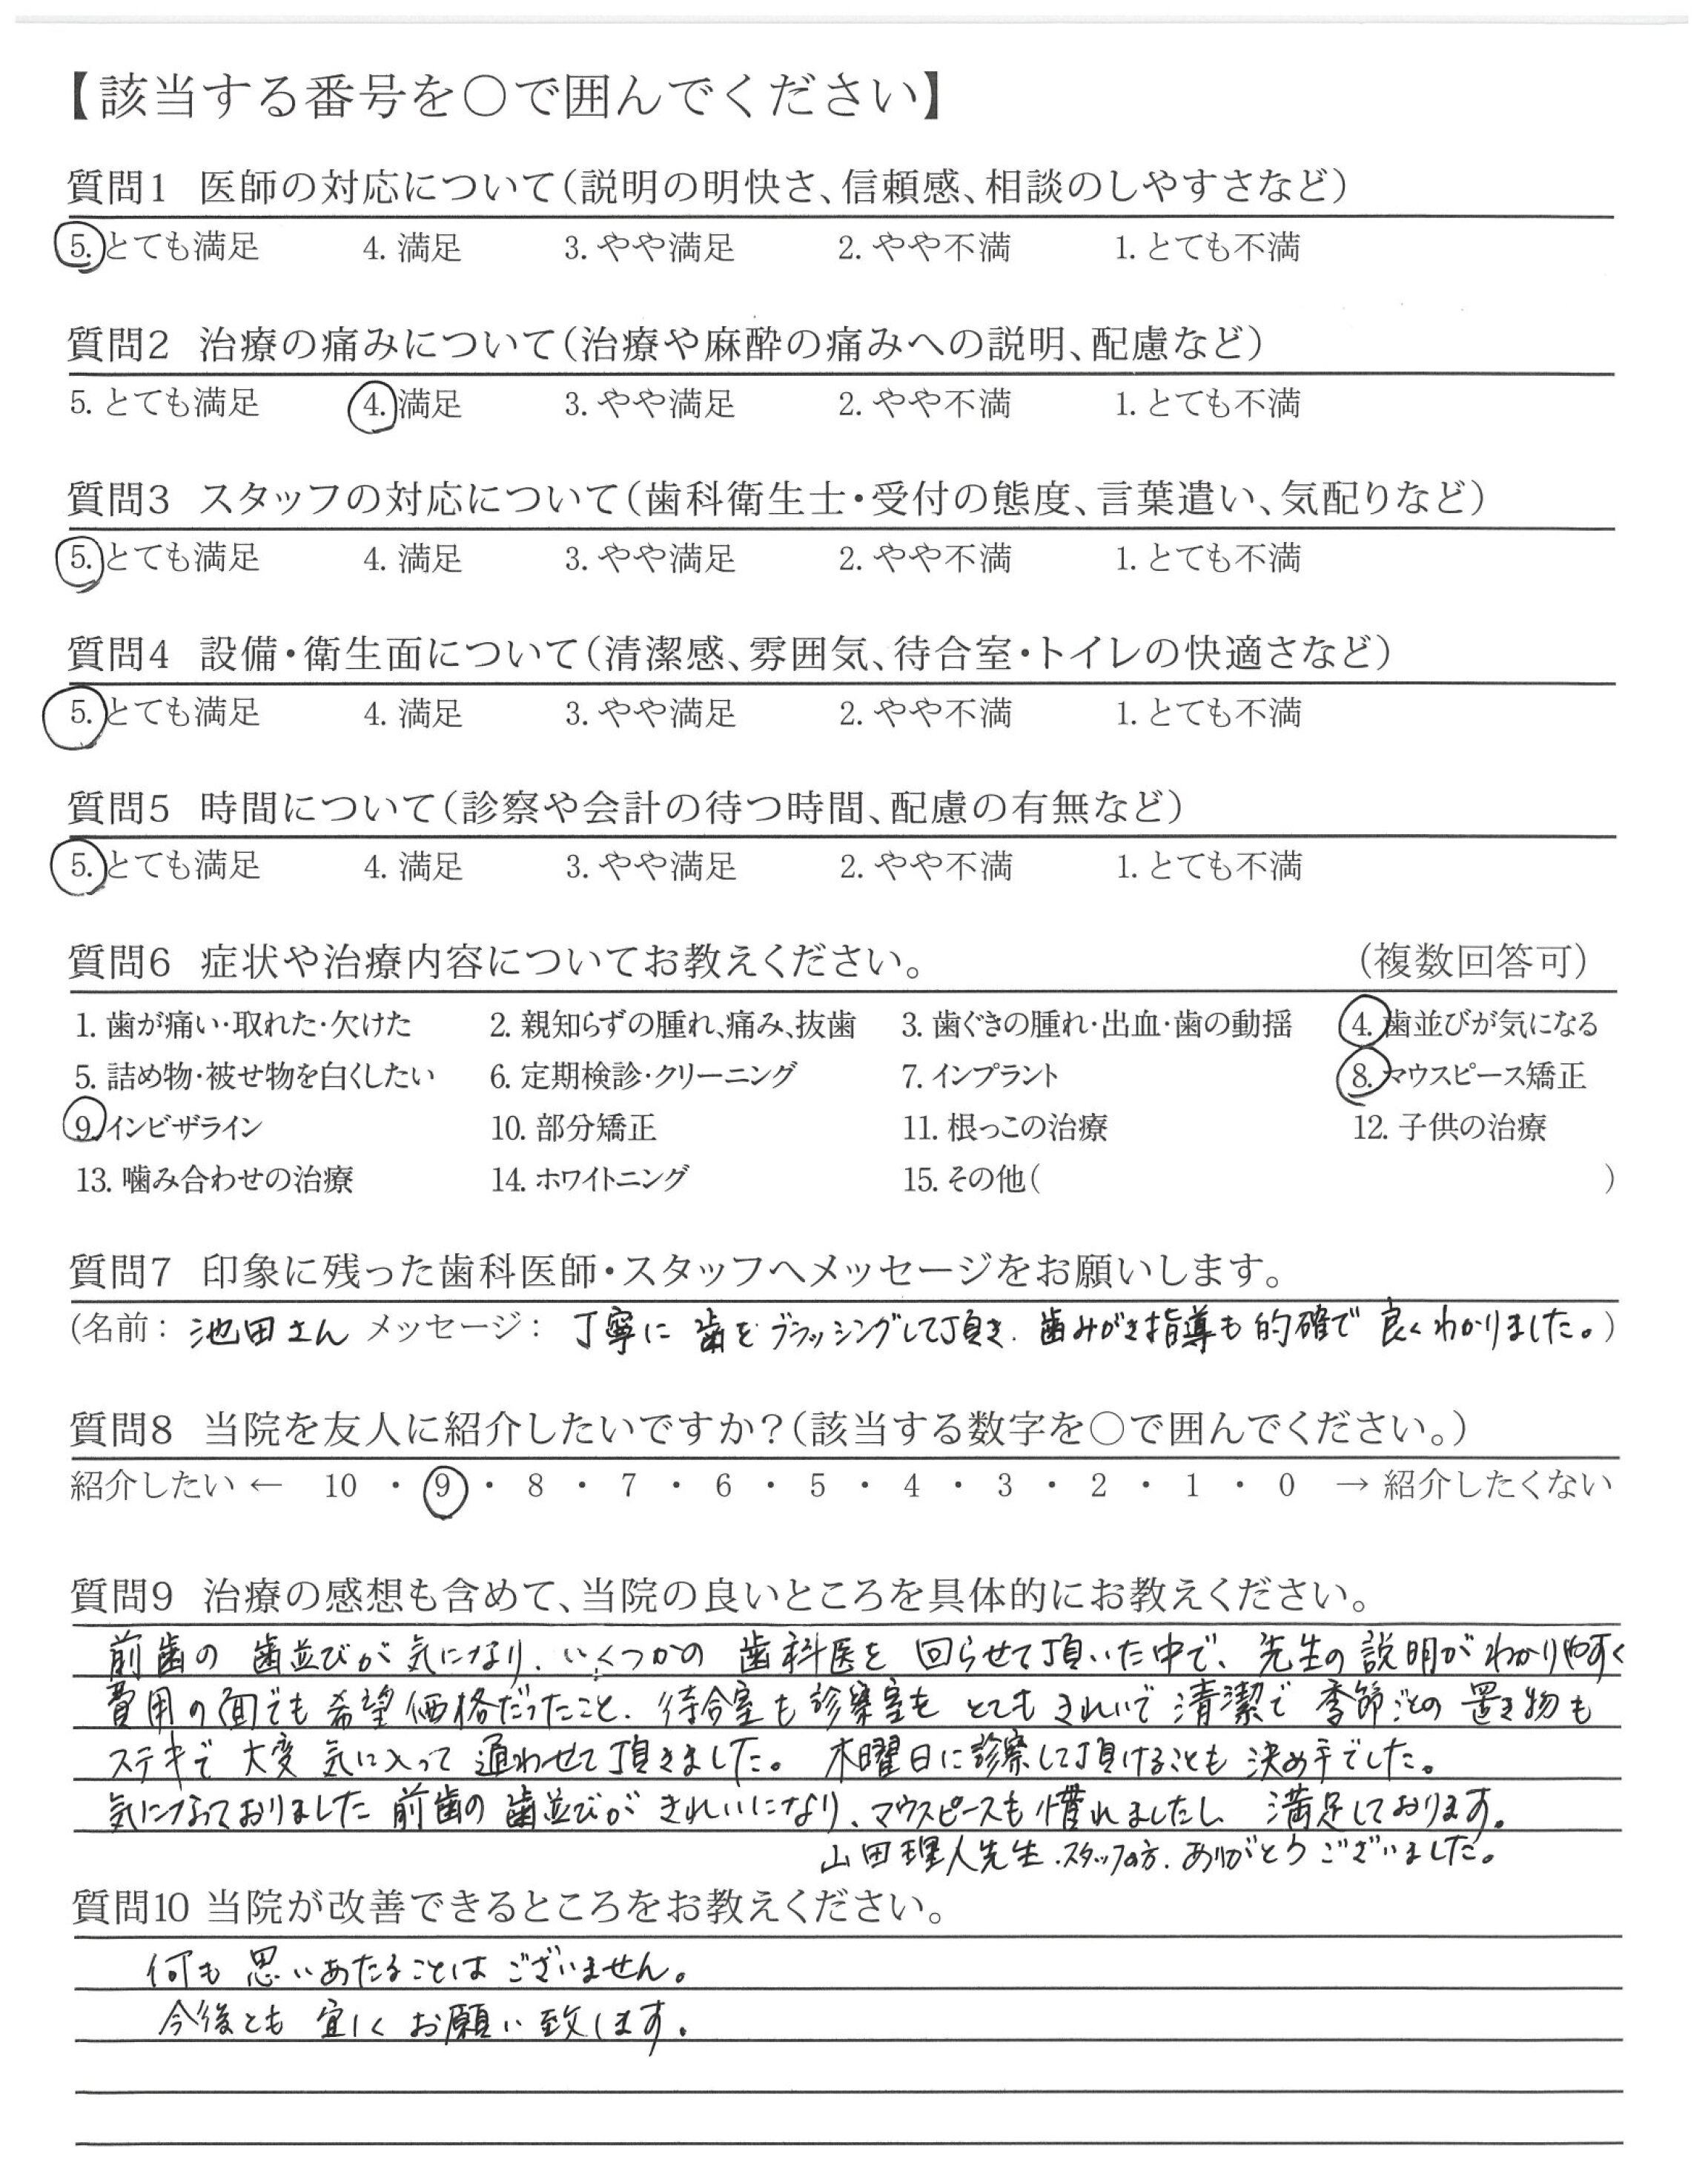 【該当する番号を○で囲んでください】
質問1 医師の対応について(説明の明快さ、信頼感、相談のしやすさなど)
5. とても満足 4. 満足 3. やや満足 2. やや不満 1. とても不満
質問2 治療の痛みについて(治療や麻酔の痛みへの説明、配慮など)
5. とても満足 4. 満足 3. やや満足 2. やや不満 1. とても不満
質問3 スタッフの対応について(歯科衛生士・受付の態度、言葉遣い、気配りなど)
5. とても満足 4. 満足 3. やや満足 2. やや不満 1. とても不満
質問4 設備・衛生面について(清潔感、雰囲気、待合室・トイレの快適さなど)
5. とても満足 4. 満足 3. やや満足 2. やや不満 1. とても不満
質問5 時間について(診察や会計の待つ時間、配慮の有無など)
5. とても満足 4. 満足 3. やや満足 2. やや不満 1. とても不満
質問6 症状や治療内容についてお教えください。 (複数回答可)
1. 歯が痛い・取れた・欠けた 2. 親知らずの腫れ、痛み、抜歯 3. 歯ぐきの腫れ・出血・歯の動揺 4. 歯並びが気になる
5. 詰め物・被せ物を白くしたい 6. 定期検診・クリーニング 7. インプラント 8. マウスピース矯正
9. インビザライン 10. 部分矯正 11. 根っこの治療 12. 子供の治療
13. 噛み合わせの治療 14. ホワイトニング 15. その他( )
質問7 印象に残った歯科医師・スタッフへメッセージをお願いします。
(名前: 池田さん メッセージ: 丁寧に歯をブラッシングして頂き、歯みがき指導も的確で良くわかりました。)
質問8 当院を友人に紹介したいですか?(該当する数字を○で囲んでください。)
紹介したい ← 10 ・ 9 ・ 8 ・ 7 ・ 6 ・ 5 ・ 4 ・ 3 ・ 2 ・ 1 ・ 0 → 紹介したくない
質問9 治療の感想も含めて、当院の良いところを具体的にお教えください。
前歯の歯並びが気になり、いくつかの歯科医を回らせて頂いた中で、先生の説明がわかりやすく
費用の面でも希望価格だったこと、待合室も診察室もとてもきれいで清潔で季節ごとの置き物も
ステキで大変気に入って通わせて頂きました。木曜日に診察して頂けることも決め手でした。
気になっておりました前歯の歯並びがきれいになり、マウスピースも慣れましたし満足しております。
山田理人先生、スタッフの方、ありがとうございました。
質問10 当院が改善できるところをお教えください。
何も思いあたることはございません。
今後とも宜しくお願い致します。